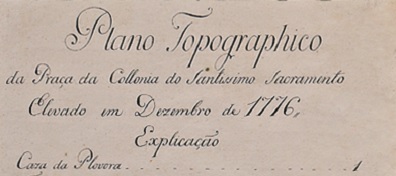 Plano Topographico
da Praça da Collonia do Santissimo Sacramento
Elevado em Dezembro de 1776,
Explicação
Caza da Plovora. . . . . . . . . . . . . . . . . 1